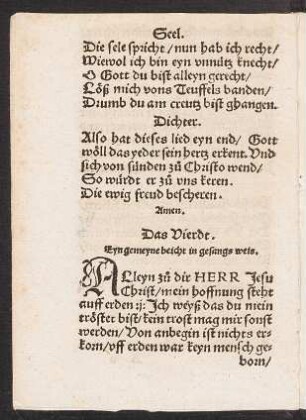 Seel.
Die sele spricht / nun hab ich recht /
Wiewol ich bin eyn vnnütz knecht /
O Gott du bist alleyn gerecht /
Löß mich vons Teuffels banden /
Drumb du am creutz bist ghangen.
Dichter.
Also hat dieses lied eyn end / Gott
wöll das yeder sein hertz erkent. Vnd
sich von sünden zů Christo wend /
So würdt er zů vns keren.
Die ewig freud bescheren.
Amen.
Das Vierdt.
Eyn gemeyne beicht in gesangs weis.
ALleyn zů dir HERR Jesu
Christ / mein hoffnung steht
auff erden :|: Ich weyß das du mein
tröster bist / kein trost mag mir sonst
werden / Von anbegin ist nichts er-
korn / vff erden war keyn mensch ge-
born /